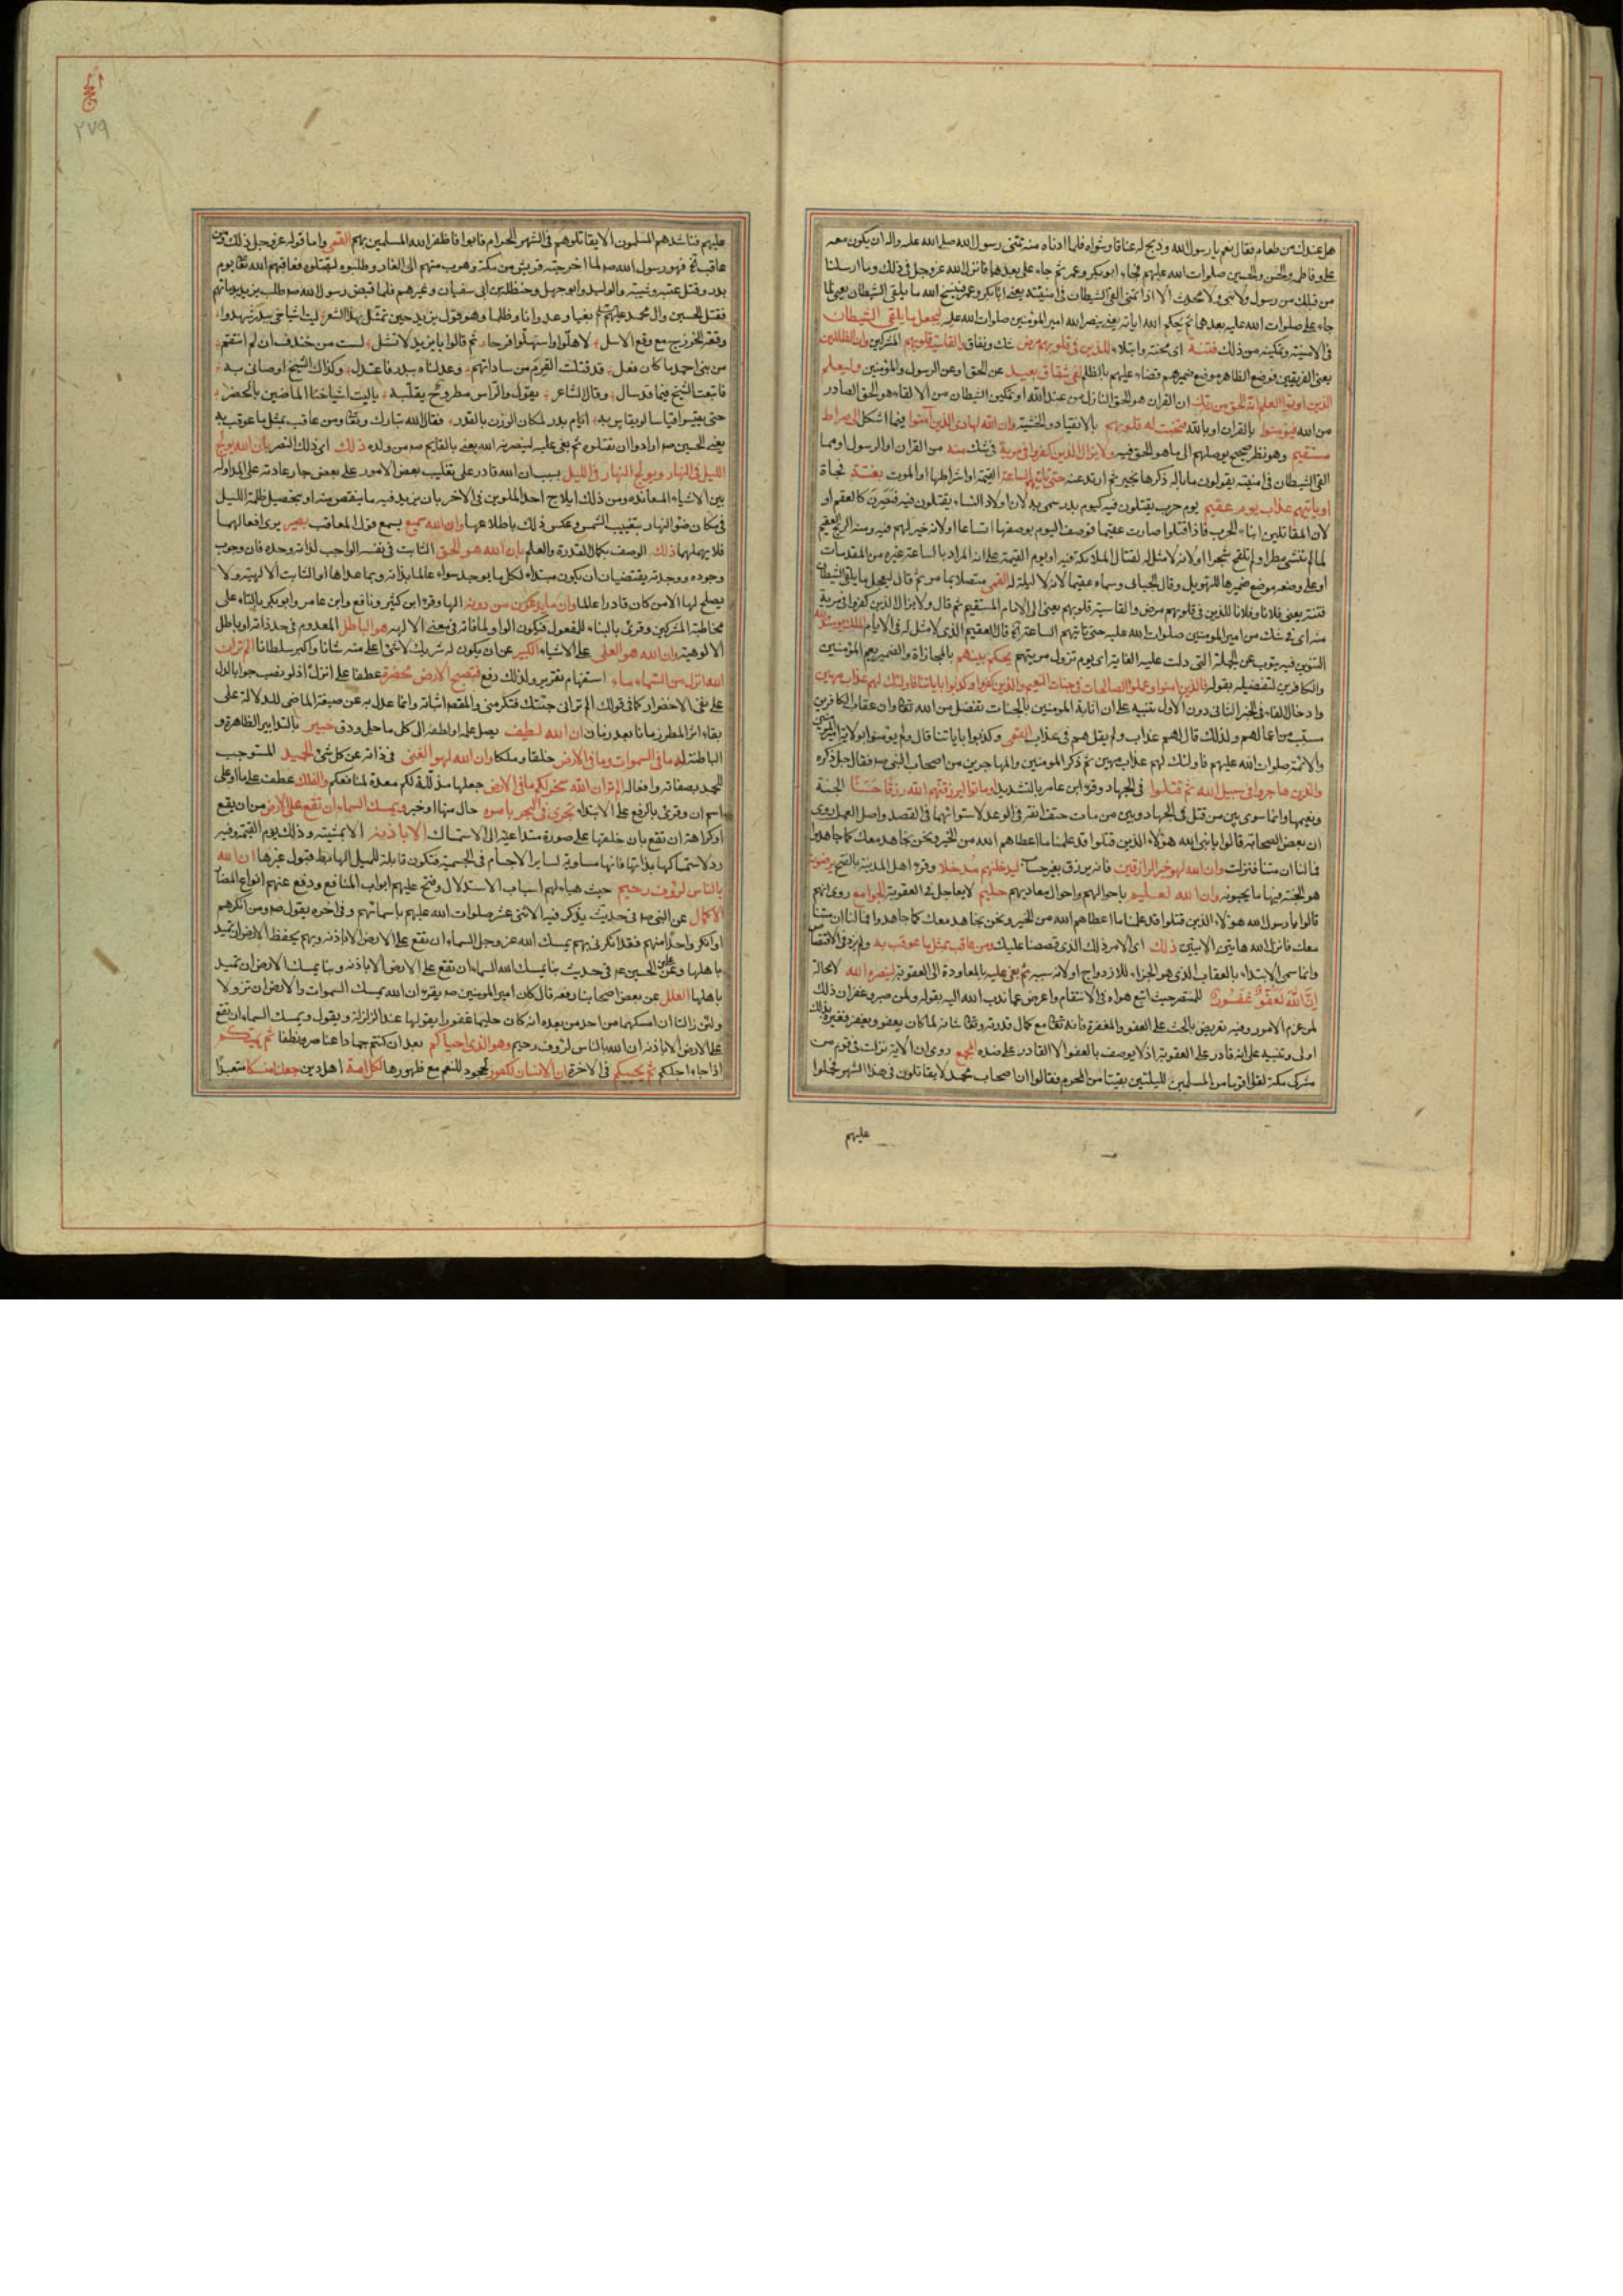 هل عندك من طعام فقال نعم يا رسول الله وذبح له عناقا وشواه فلما ادناه منه تمنى رسول الله صلى الله عليه واله ان يكون معه
على وفاطمه والحسن والحسين صلوات الله عليهم فجاء ابوبكر وعمر ثم جاء على بعدهما فانزل الله عز وجل فى ذلك وما ارسلنا
من قبلك من رسول ولا نبى ولا محدث الا اذا تمنى القى الشيطان فى امنيته يعنى ابابكر وعمر فينسخ الله ما يلقى الشيطان يعنى لما
جاء على صلوات الله عليه بعدهما ثم يحكم الله اياته يعنى ينصر الله امير المؤمنين صلوات الله عليه ليجعل ما يلقى الشيطان
فى الامنية وتمكينه من ذلك فتنة اى محنة وابتلاء للذين فى قلوبهم مرض شك ونفاق والقاسية قلوبهم المشركين وان الظالمين
يعنى الفريقين فوضع الظاهر موضع ضميرهم قضاء عليهم بالظلم لفى شقاق بعيد عن الحق او عن الرسول والمؤمنين وليعلم
الذين اوتوا العلم انه الحق من ربك ان القران هو الحق النازل من عند الله او تمكين الشيطان من الالقاء هو الحق الصادر
من الله فيؤمنوا به بالقران او بالله فتخبت له قلوبهم بالانقياد والخشية وان الله لهادى الذين آمنوا فيما اشكل الى صراط
مستقيم وهو نظر صحيح يوصلهم الى ما هو الحق فيه ولا يزال الذين كفروا فى مرية فى شك منه من القران او الرسول او مما
القى الشيطان فى امنيته يقولون ما باله ذكرها بخير ثم ارتد عنه حتى تاتيهم الساعة القيمة او اشراطها او الموت بغتة فجاة
او ياتيهم عذاب يوم عقيم يوم حرب يقتلون فيه كيوم بدر سمى به لان اولاد النساء يقتلون فيه فيصرن كالعقم او
لان المقاتلين ابناء الحرب فاذا قتلوا صارت عقيما فوصف اليوم بوصفها اتساعا او لانه لا خير لهم فيه ومنه الريح العقيم
لما لم تنشئ مطرا ولم تلقح شجرا او لانه لا مثل له لقتال الملائكة فيه او يوم القيمة على ان المراد بالساعة غيره من المقدمات
او على وضعه موضع ضميرها للتهويل وقال الجبائى وسماه عقيما لانه لا ليلة له القمى متصلا بما مر ثم قال ليجعل ما يلقى الشيطان
فتنة يعنى فلانا وفلانا للذين فى قلوبهم مرض والقاسية قلوبهم يعنى الى الامام المستقيم ثم قال ولا يزال الذين كفروا فى مرية
منه اى فى شك من امير المومنين صلوات الله عليه حتى تاتيهم الساعة قال العقيم الذى لا مثل له فى الايام الملك يومئذ لله
التنوين فيه ينوب عن الجملة التى دلت عليه الغاية اى يوم تزول مريتهم يحكم بينهم بالمجازاة والضمير يعم المؤمنين
والكافرين لتفضيله بقوله فالذين امنوا وعملوا الصالحات فى جنات النعيم والذين كفروا وكذبوا باياتنا فاولئك لهم عذاب مهين
وادخال الفاء فى الخبر الثانى دون الاول تنبيه على ان اثابة المومنين بالجنات تفضل من الله تعالى وان عقاب الكافرين
مسبب من اعمالهم ولذلك قال لهم عذاب ولم يقل هم فى عذاب القمى وكذبوا باياتنا قال ولم يؤمنوا بولاية امير المومنين
والائمة صلوات الله عليهم فاولئك لهم عذاب مهين ثم ذكر المومنين والمهاجرين من اصحاب النبى ص فقال جل ذكره
والذين هاجروا فى سبيل الله ثم قتلوا فى الجهاد وقرء ابن عامر بالتشديد او ماتوا ليرزقنهم الله رزقا حسنا الجنة
ونعيمها وانما سوى بين من قتل فى الجهاد وبين من مات حتف انفه فى الوعد لاستوائهما فى القصد واصل العمل روى
ان بعض الصحابة قالوا يا نبى الله هؤلاء الذين قتلوا قد علمنا ما اعطاهم الله من الخير ونحن نجاهد معك كما جاهدوا
فما لنا ان متنا فنزلت وان الله لهو خير الرازقين فانه يرزق بغير حساب ليدخلنهم مدخلا وقرء اهل المدينة بالفتح يرضونه
هو الجنة فيها ما يحبونه وان الله لعليم باحوالهم واحوال معاديهم حليم لا يعاجل فى العقوبة الجوامع روى انهم
قالوا يا رسول الله هولاء الذين قتلوا قد علمنا ما اعطاهم الله من الخير ونحن نجاهد معك كما جاهدوا فما لنا ان متنا
معك فانزل الله هاتين الايتين ذلك اى الامر ذلك الذى قصصنا عليك ومن عاقب بمثل ما عوقب به ولم يزد فى الاقتصاص
وانما سمى الابتداء بالعقاب الذى هو الجزاء للازدواج او لانه سببه ثم بغى عليه بالمعاودة الى العقوبة لينصره الله لا محالة
ان الله لعفو غفور للمنتصر حيث اتبع هواه فى الانتقام واعرض عما ندب الله اليه بقوله ولمن صبر وغفر ان ذلك
لمن عزم الامور وفيه تعريض بالحث على العفو والمغفرة فانه تعالى مع كمال قدرته وتعالى شانه لما كان يعفو ويغفر فغيره بذلك
اولى وتنبيه على انه قادر على العقوبة اذ لا يوصف بالعفو الا القادر على ضده المجمع روى ان الاية نزلت فى قوم من
مشركى مكة لقوا قوما من المسلمين لليلتين بقيتا من المحرم فقالوا ان اصحاب محمد لا يقاتلون فى هذا الشهر فحملوا
عليهم
٢٧٩
عليهم فناشدهم المسلمون الا يقاتلوهم فى الشهر الحرام فابوا فاظفر الله المسلمين بهم القمى واما قوله عز وجل ذلك ومن
عاقب الخ فهو رسول الله ص لما اخرجته قريش من مكة وهرب منهم الى الغار وطلبوه ليقتلوه فعاقبهم الله تعالى يوم
بدر وقتل عتبة وشيبة والوليد وابو جهل وحنظلة بن ابى سفيان وغيرهم فلما قبض رسول الله ص طلب يزيد بدمائهم
فقتل الحسين وال محمد عليهم بغيا وعدوانا وظلما وهو قول يزيد حين تمثل بهذا الشعر ليت اشياخى ببدر شهدوا
وقعة الخزرج مع وقع الاسل لاهلوا واستهلوا فرحا ثم قالوا يا يزيد لا تشل لست من خندف ان لم انتقم
من بنى احمد ما كان فعل قد قتلت القرم من ساداتهم وعدلناه ببدر فاعتدل وكذاك الشيخ اوصانى به
فاتبعت الشيخ فيما قد سال وقال الشاعر يقول والراس مطروح يقلبه يا ليت اشياخنا الماضين بالحضر
حتى يقيسوا قياسا لو يقاس به ايام بدر لكان الوزن بالقدر فقال الله تبارك وتعالى ومن عاقب بمثل ما عوقب به
يعنى الحسين ص ارادوا ان يقتلوه ثم بغى عليه لينصرنه الله يعنى بالقايم ص من ولده ذلك اى ذلك النصر بان الله يولج
الليل فى النهار ويولج النهار فى الليل بسبب ان الله قادر على تقليب بعض الامور على بعض جار عادته على المداولة
بين الاشياء المعانده ومن ذلك ايلاج احد الملوين فى الاخر بان يزيد فيه ما ينقص منه او بتحصيل ظلمة الليل
فى مكان ضوء النهار بتغييب الشمس وعكس ذلك باطلاعها وان الله سميع يسمع قول المعاقب بصير يرى افعالهما
فلا يهملهما ذلك الوصف بكمال القدرة والعلم بان الله هو الحق الثابت فى نفسه الواجب لذاته وحده فان وجوب
وجوده ووحدته يقتضيان ان يكون مبتداء لكل ما يوجد سواه عالما بذاته وبما عداها او الثابت الالهية ولا
يصلح لها الا من كان قادرا عالما وان ما يدعون من دونه الها وقرء ابن كثير ونافع وابن عامر وابوبكر بالتاء على
مخاطبة المشركين وقرئ بالبناء للمفعول فتكون الواو لما فانه فى معنى الالهة هو الباطل المعدوم فى حد ذاته او باطل
الالوهية وان الله هو العلى على الاشياء الكبير عن ان يكون له شريك لا شئ اعلى منه شانا واكبر سلطانا الم تر ان
الله انزل من السماء ماء استفهام تقرير ولذلك رفع فتصبح الارض مخضرة عطفا على انزل اذ لو نصب جوابا لدل
على نفى الاخضرار كما فى قولك الم تر انى جئتك فتكرمنى والمقصد اثباته وانما عدل به عن صيغة الماضى للدلالة على
بقاء اثر المطر زمانا بعد زمان ان الله لطيف يصل علمه او لطفه الى كل ما جل ودق خبير بالتدابير الظاهرة و
الباطنة له ما فى السموات وما فى الارض خلقا وملكا وان الله لهو الغنى فى ذاته عن كل شئ الحميد المستوجب
للحمد بصفاته وافعاله الم تر ان الله سخر لكم ما فى الارض جعلها مذللة لكم معدة لمنافعكم والفلك عطف على ما او على
اسم ان وقرئ بالرفع على الابتداء تجرى فى البحر بامره حال منها او خبر ويمسك السماء ان تقع على الارض من ان يقع
او كراهة ان تقع بان خلقها على صورة متداعية الى الاستمساك الا باذنه الا بمشيته وذلك يوم القيمة وفيه
رد لاستمساكها بذاتها فانها مساوية لساير الاجسام فى الجسمية فتكون قابلة للميل الهابط قبول غيرها ان الله
بالناس لرؤف رحيم حيث هياء لهم اسباب الاستدلال وفتح عليهم ابواب المنافع ودفع عنهم انواع المضار
الاكمال عن النبى ص فى حديث يذكر فيه الاثنى عشر صلوات الله عليهم باسمائهم وفى اخره يقول ص ومن انكرهم
او انكر واحدا منهم فقد انكرنى بهم يمسك الله عز وجل السماء ان تقع على الارض الا باذنه وبهم يحفظ الارض ان تميد
باهلها وعن على بن الحسين ع فى حديث بنا يمسك الله السماء ان تقع على الارض الا باذنه وبنا يمسك الارض ان تميد
باهلها العلل عن بعض اصحابنا رفعه قال كان امير المومنين ص يقرء ان الله يمسك السموات والارض ان تزولا
ولئن زالتا ان امسكهما من احد من بعده انه كان حليما غفورا يقولها عند الزلزلة ويقول ويمسك السماء ان تقع
على الارض الا باذنه ان الله بالناس لرؤف رحيم وهو الذى احياكم بعد ان كنتم جمادا عناصر ونطفا ثم يميتكم
اذا جاء اجلكم ثم يحييكم فى الاخرة ان الانسان لكفور لجحود للنعم مع ظهورها لكل امة اهل دين جعلنا منسكا متعبدا